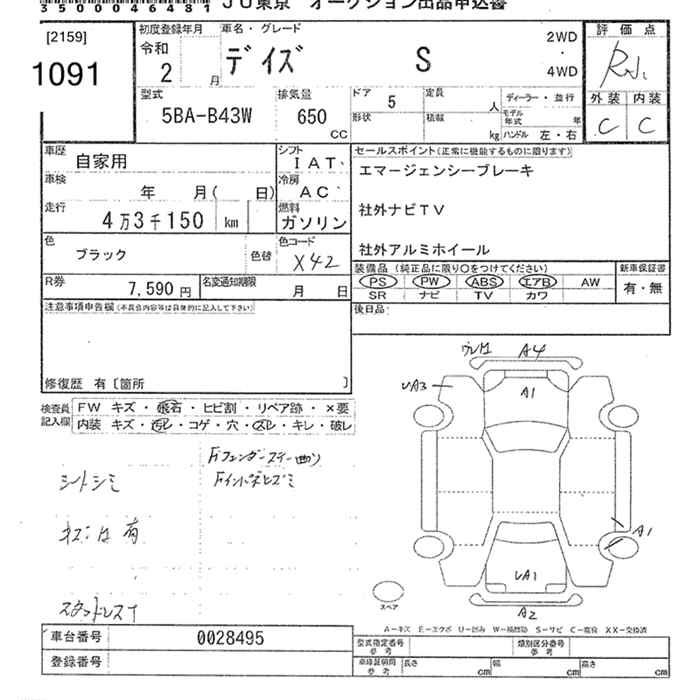 35000046481 JU東京 オークション出品申込書
[2159]
1091
初度登録年月 令和 2 月
車名・グレード デイズ S 2WD ・ 4WD
評価点
外装 内装
C C
型式 5BA-B43W
排気量 650 CC
ドア 5
形状
定員 人
積載 kg
ディーラー・並行
モデル年式 年
ハンドル 左・右
車歴 自家用
シフト IAT
車検 年 月( 日)
冷房 AC
走行 4万3千150 km
燃料 ガソリン
色 ブラック 色替
色コード X42
セールスポイント(正常に機能するものに限ります)
エマージェンシーブレーキ
社外ナビTV
社外アルミホイール
装備品(純正品に限り○をつけてください)
PS PW ABS エアB AW
SR ナビ TV カワ
新車保証書
有・無
R券 7,590円
名変通知期限 月 日
後日品
注意事項申告欄(不具合内容等は具体的に記入して下さい)
修復歴 有〔箇所 〕
検査員記入欄
FW キズ・飛石・ヒビ割・リペア跡・×要
内装 キズ・汚レ・コゲ・穴・スレ・キレ・破レ
シートシミ
キズ凹有
スタッドレス
A4
UA3
A1
A1
UA1
A2
スペア
A-キズ E-エクボ U-凹み W-補修跡 S-サビ C-腐食 XX-交換済
車台番号 0028495
登録番号
型式指定番号 参考
類別区分番号 参考
車庫証明用 参考 長さ cm 幅 cm 高さ cm